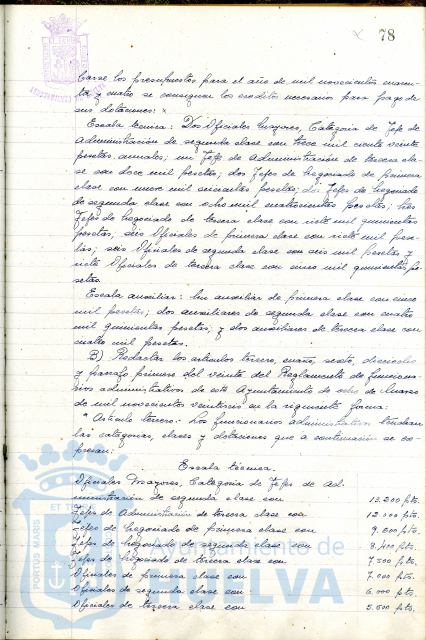 78
carse los presupuestos para el año de mil novecientos cuaren-
ta y cuatro se consignen los creditos necesarios para pago de
sus dotaciones:
Escala tecnica: Dos Oficiales Mayores, Categoria de Jefe de
Administración de segunda clase con trece mil ciento veinte
pesetas anuales; un Jefe de Administración de tercera cla-
se con doce mil pesetas; dos Jefes de Negociado de primera
clase con nueve mil seiscientas pesetas; dos Jefes de Negociado
de segunda clase con ocho mil cuatrocientas pesetas; tres
Jefes de Negociado de tercera clase con siete mil quinientas
pesetas; seis Oficiales de primera clase con siete mil pese-
tas; seis Oficiales de segunda clase con seis mil pesetas y
siete Oficiales de tercera clase con cinco mil quinientas pe-
setas.
Escala auxiliar: Un auxiliar de primera clase con cinco
mil pesetas; dos auxiliares de segunda clase con cuatro
mil quinientas pesetas; y dos auxiliares de tercera clase con
cuatro mil pesetas.
B) Redactar los articulos tercero, sexto, dieciocho
y parrafo primero del veinte del Reglamento de funciona-
rios administrativos de este Ayuntamiento de ocho de Marzo
de mil novecientos veintiseis en la siguiente forma:
"Articulo tercero.- Los funcionarios administrativos tendran
las categorias, clases y dotaciones que a continuación se ex-
presan:
Escala técnica.
Oficiales Mayores, Categoria de Jefes de Ad-
ministración de segunda clase con 13.200 pts.
Jefes de Administración de tercera clase con 12.000 pts.
Jefes de Negociado de primera clase con 9.600 pts.
Jefes de Negociado de segunda clase con 8.400 pts.
Jefes de Negociado de tercera clase con 7.500 pts.
Oficiales de primera clase con 7.000 pts.
Oficiales de segunda clase con 6.000 pts.
Oficiales de tercera clase con 5.500 pts.
PORTUS MARIS
ET TE
Ayuntamiento de
HUELVA